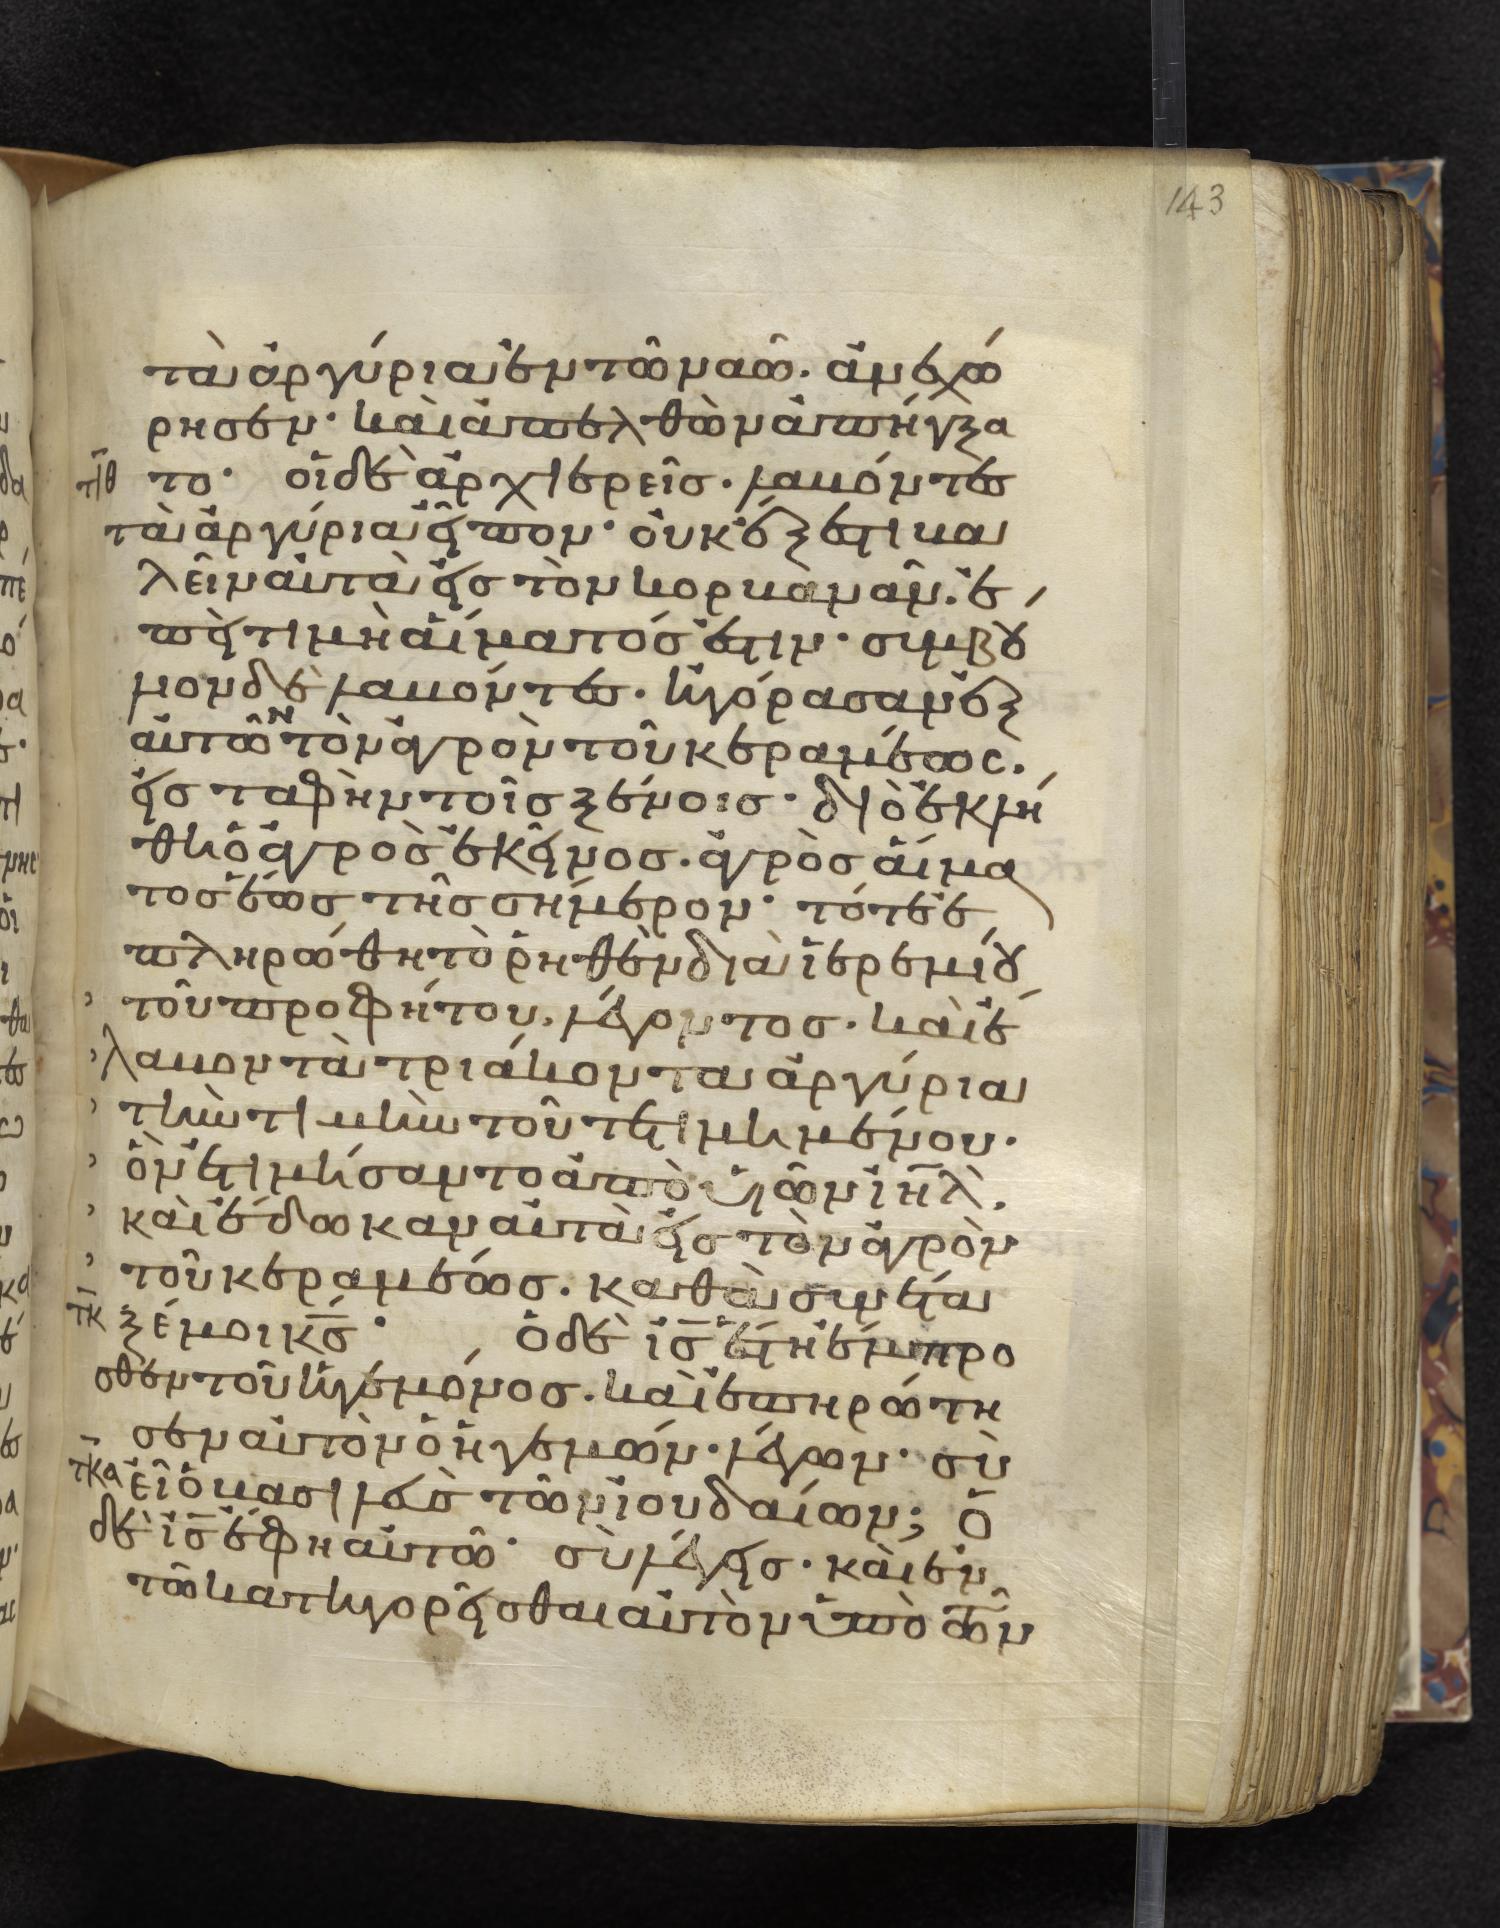 143
τὰ ἀργύρια ἐν τῶ ναῶ. ἀνεχώ
ρησεν· καὶ ἀπελθὼν ἀπήγξα
τιθ το· οἱ δὲ ἀρχιερεῖσ. λαβόντεσ
τὰ ἀργύρια εἶπον· οὐκ ἔξεστι βα
λεῖν αὐτὰ εἰσ τὸν κορβανᾶν. ἐ
πεὶ τιμὴ αἵματόσ ἐστιν· συμβού
λιον δὲ λαβόντεσ. ἠγόρασαν ἐξ
αὐτῶν τὸν ἀγρὸν τοῦ κεραμέωσ.
εἰσ ταφὴν τοῖσ ξένοισ· διὸ ἐκλή
θη ὁ ἀγρὸσ ἐκεῖνοσ. ἀγρὸσ αἵμα
τοσ ἕωσ τῆσ σήμερον· τότε ἐ
πληρώθη τὸ ῥηθὲν διὰ ἱερεμίου
τοῦ προφήτου, λέγοντοσ. καὶ ἔ
λαβον τὰ τριάκοντα ἀργύρια
τὴν τιμὴν τοῦ τετιμημένου·
ὃν ἐτιμήσαντο ἀπὸ υἱῶν ιηλ.
καὶ ἔδωκαν αὐτὰ εἰσ τὸν ἀγρὸν
τοῦ κεραμέωσ. καθὰ συνέτα
τκ ξέ μοι κσ· ὁ δὲ ισ ἔστη ἔμπρο
σθεν τοῦ ἡγεμόνοσ. καὶ ἐπηρώτη
σεν αὐτὸν ὁ ἡγεμών. λέγων· σὺ
τκα εἶ ὁ βασιλεὺσ τῶν ἰουδαίων; ὁ
δὲ ισ ἔφη αὐτῶ· σὺ λέγεισ. καὶ ἐν
τῶ κατηγορεῖσθαι αὐτὸν ὑπὸ τῶν